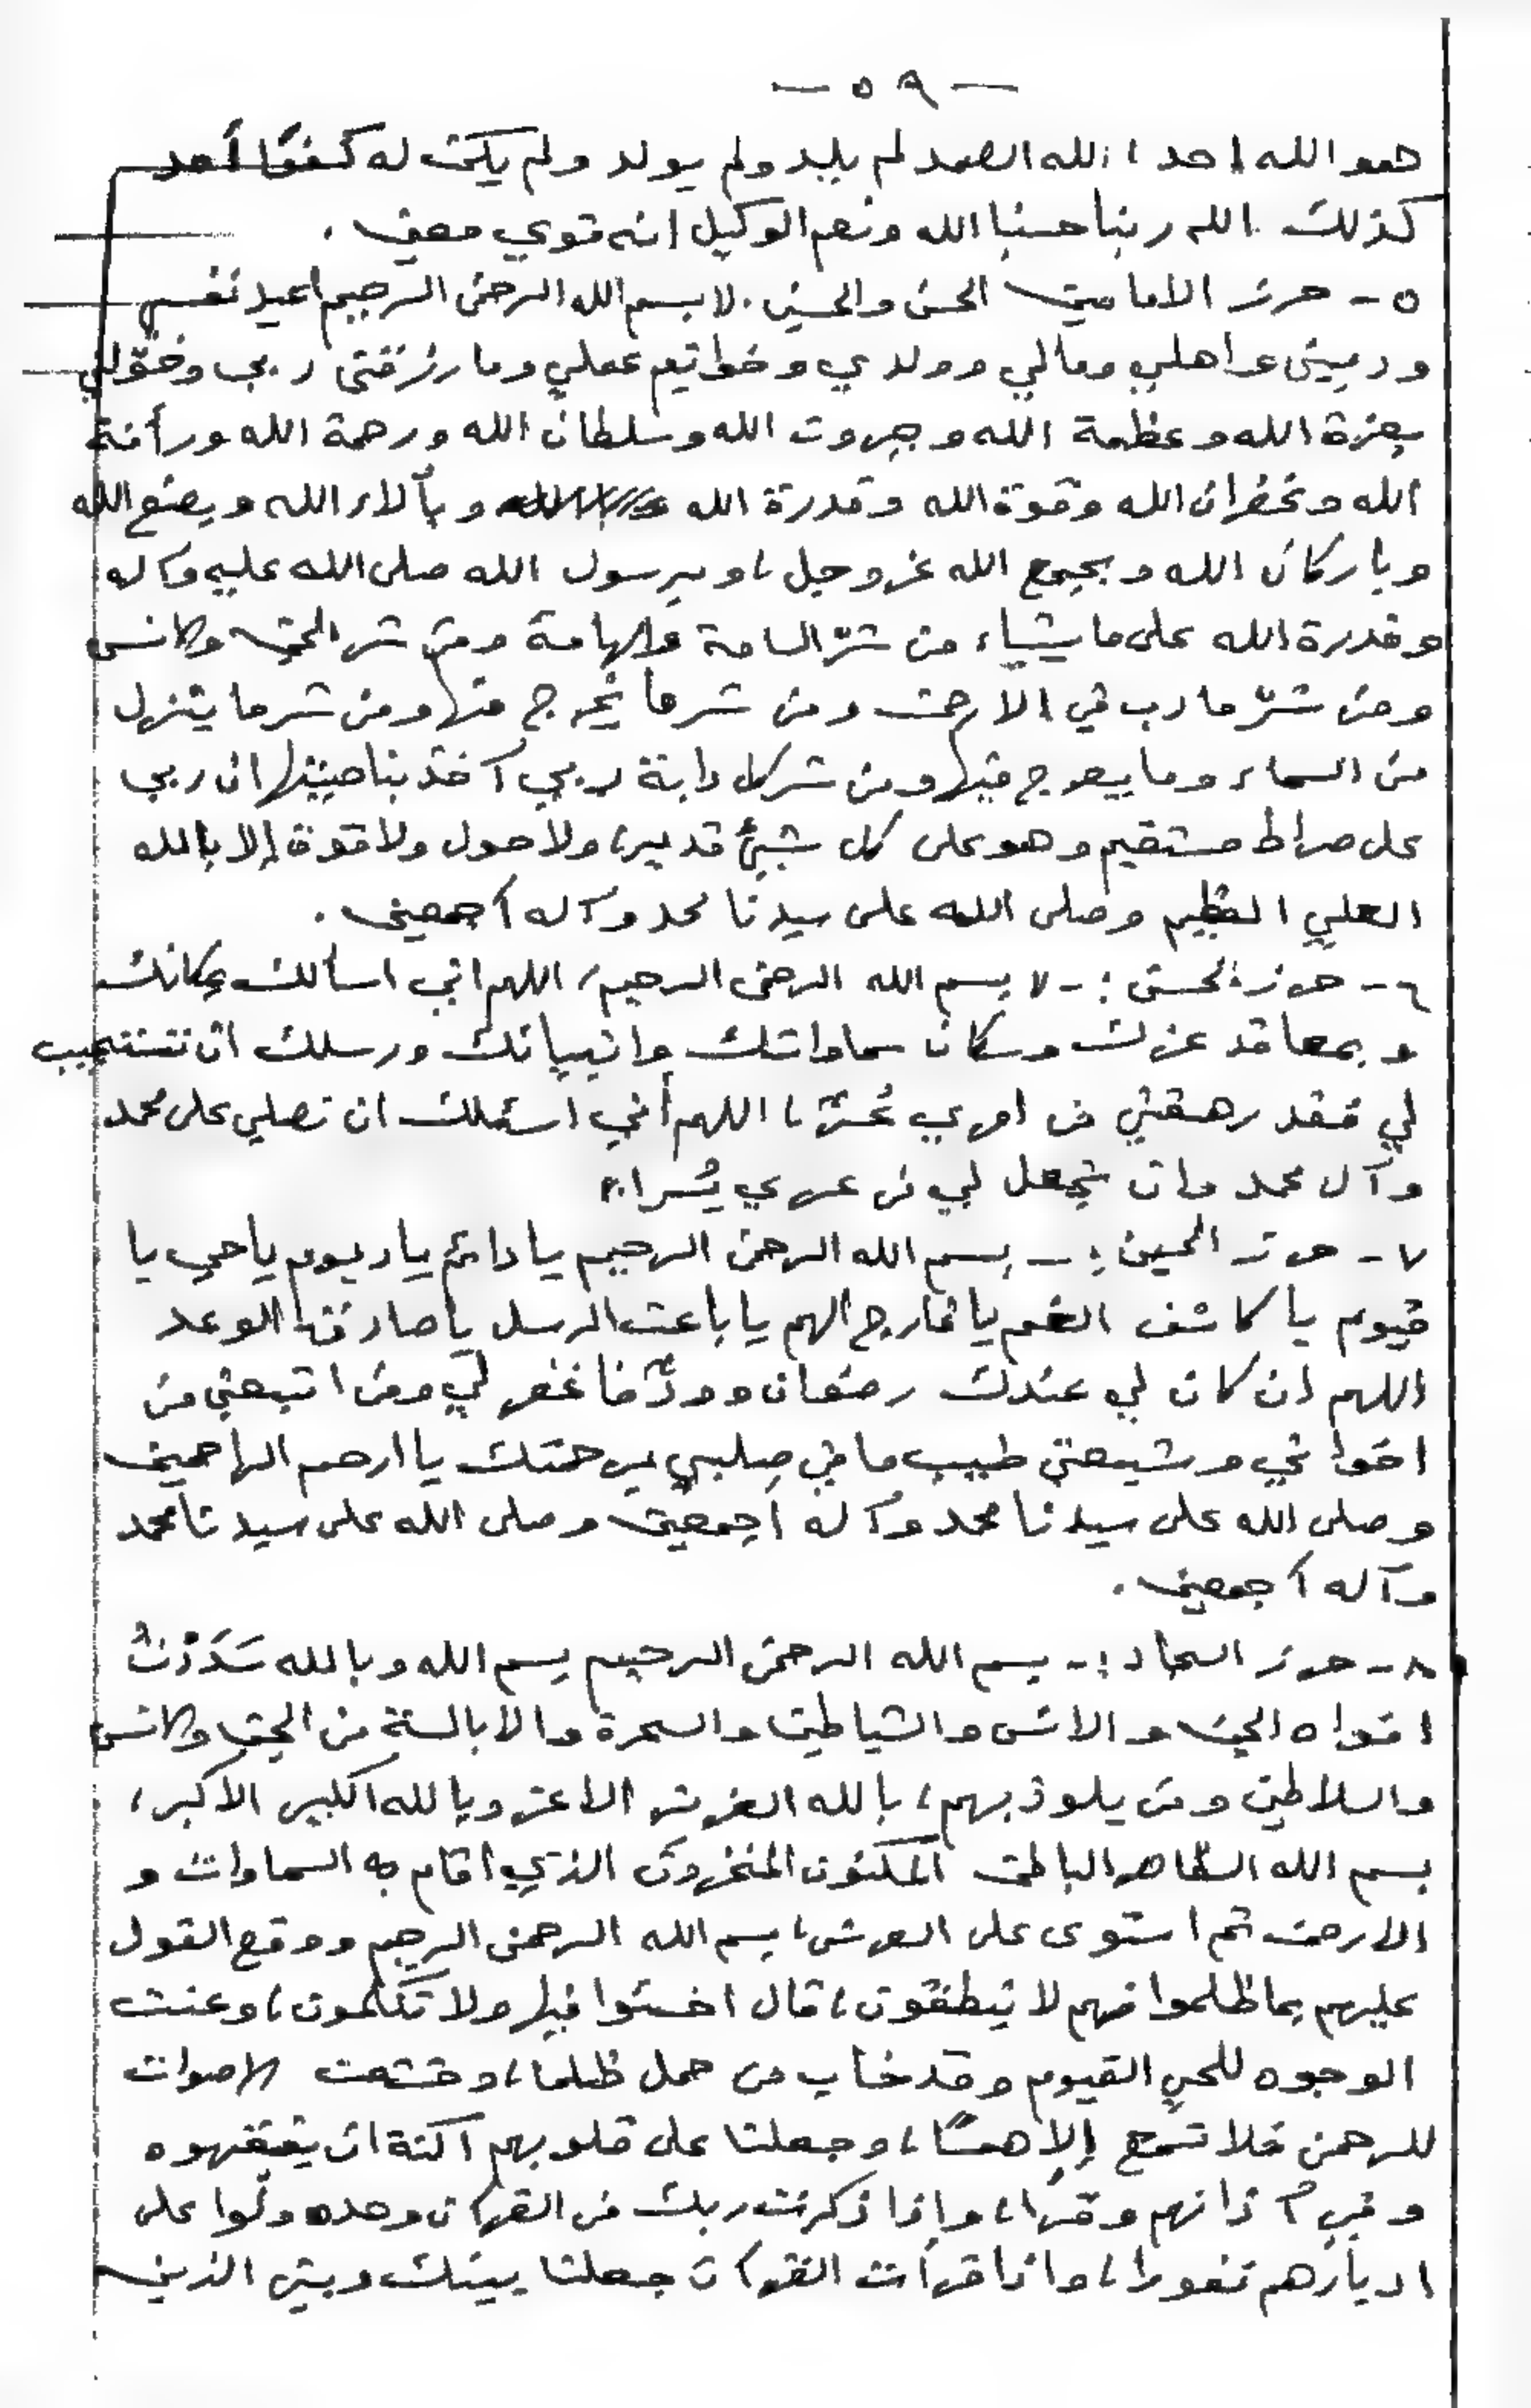 — ٥٩ —
هو الله احد، الله الصمد لم يلد ولم يولد ولم يكن له كفوًا أحد
كذلك الله ربنا حسبنا الله ونعم الوكيل انه قوي معين .
٥ - حرز الامامين الحسن والحسين . لا بسم الله الرحمن الرحيم اعيذ نفسي
وديني واهلي ومالي وولدي وخواتيم عملي وما رزقني ربي وخوّلني
بعزة الله وعظمة الله وجبروت الله وسلطان الله ورحمة الله ورأفة
الله وغفران الله وقوة الله وقدرة الله وبآلاء الله وبصنع الله
وباركان الله وبجمع الله عز وجل، وبرسول الله صلى الله عليه وآله
وقدرة الله على ما يشاء من شرّ السامة والهامة ومن شر الجن والانس
ومن شرّ ما دب في الارض ومن شر ما يخرج منها ومن شر ما ينزل
من السماء وما يعرج فيها ومن شر كل دابة ربي آخذ بناصيتها ان ربي
على صراط مستقيم وهو على كل شيئ قدير، ولا حول ولا قوة إلا بالله
العلي العظيم وصلى الله على سيدنا محمد وآله أجمعين .
٦ - حرز الحسن : - لا بسم الله الرحمن الرحيم، اللهم اني اسألك بمكانك
وبمعاقد عزك وسكان سماواتك وانبيائك ورسلك ان تستجيب
لي فقد رهقني من امري عُسرٌ، اللهم أني اسئلك ان تصلي على محمد
وآل محمد وان تجعل لي من عسري يُسرا .
٧ - حرز الحسين : - بسم الله الرحمن الرحيم يا دائم يا ديوم يا حي يا
قيوم يا كاشف الغم يا فارج الهم يا باعث الرسل يا صادق الوعد
اللهم ان كان لي عندك رضوان وودٌّ فاغفر لي ومن اتبعني من
اخواني وشيعتي طيب ما في صلبي برحمتك يا ارحم الراحمين
وصلى الله على سيدنا محمد وآله اجمعين وصلى الله على سيدنا محمد
وآله أجمعين .
٨ - حرز السجاد : - بسم الله الرحمن الرحيم بسم الله وبالله سَدَدْتُ
افواه الجن والانس والشياطين والسحرة والابالسة من الجن والانس
والسلاطين ومن يلوذ بهم، بالله العزيز الاعز وبالله الكبير الاكبر،
بسم الله الظاهر الباطن المكنون المخزون الذي اقام به السماوات و
الارض ثم استوى على العرش، بسم الله الرحمن الرحيم ووقع القول
عليهم بما ظلموا فهم لا ينطقون، قال اخسئوا فيها ولا تكلمون، وعنت
الوجوه للحي القيوم وقد خاب من حمل ظلما، وخشعت الاصوات
للرحمن فلا تسمع إلا همسًا، وجعلنا على قلوبهم أكنة ان يفقهوه
وفي آذانهم وقرا، وإذا ذكرت ربك في القرآن وحده ولّوا على
ادبارهم نفورا، واذا قرأت القرآن جعلنا بينك وبين الذين